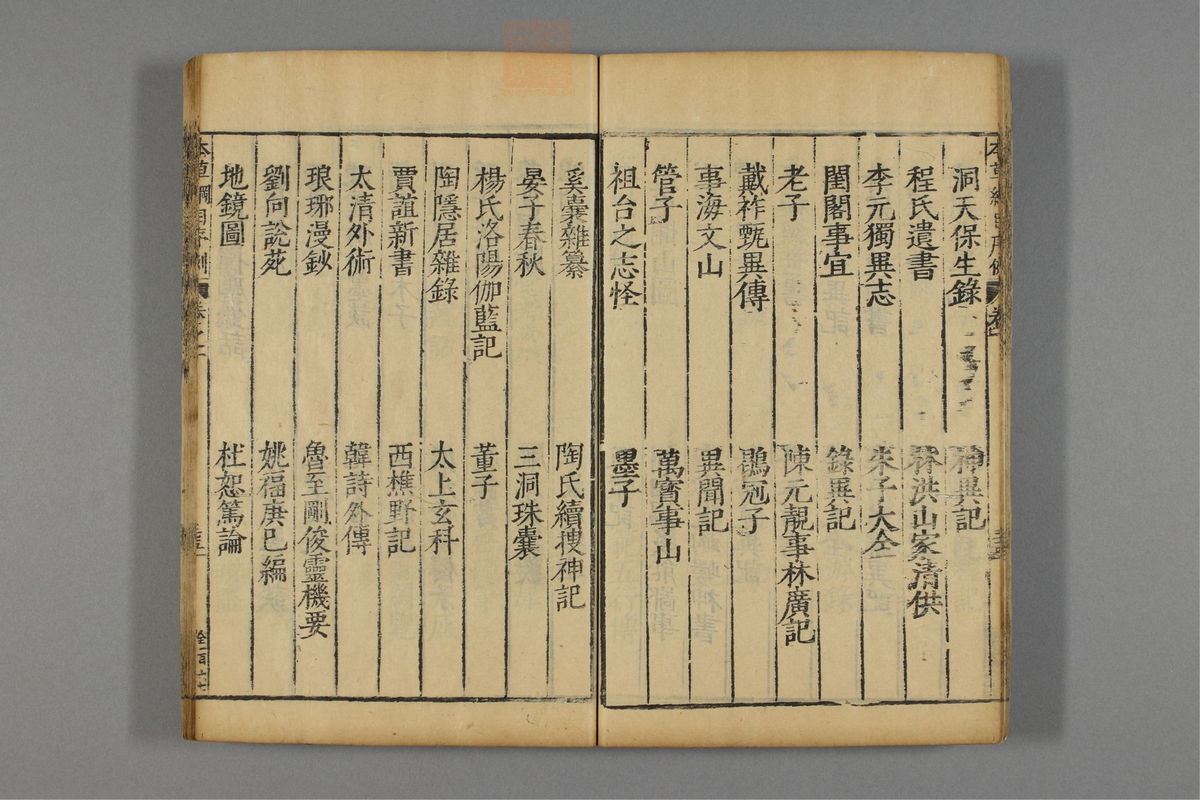 洞天保生錄 神異記
程氏遺書 林洪山家清供
李元獨異志 朱子大全
閨閣事宜 錄異記
老子 陳元靚事林廣記
戴祚甄異傳 鶡冠子
事海文山 異聞記
管子 萬寶事山
祖台之志怪 墨子
奚囊雜纂 陶氏續搜神記
晏子春秋 三洞珠囊
楊氏洛陽伽藍記 董子
陶隱居雜錄 太上玄科
賈誼新書 西樵野記
太清外術 韓詩外傳
琅琊漫鈔 魯至剛俊靈機要
劉向說苑 姚福庚巳編
地鏡圖 杜恕篤論
本草綱目序例